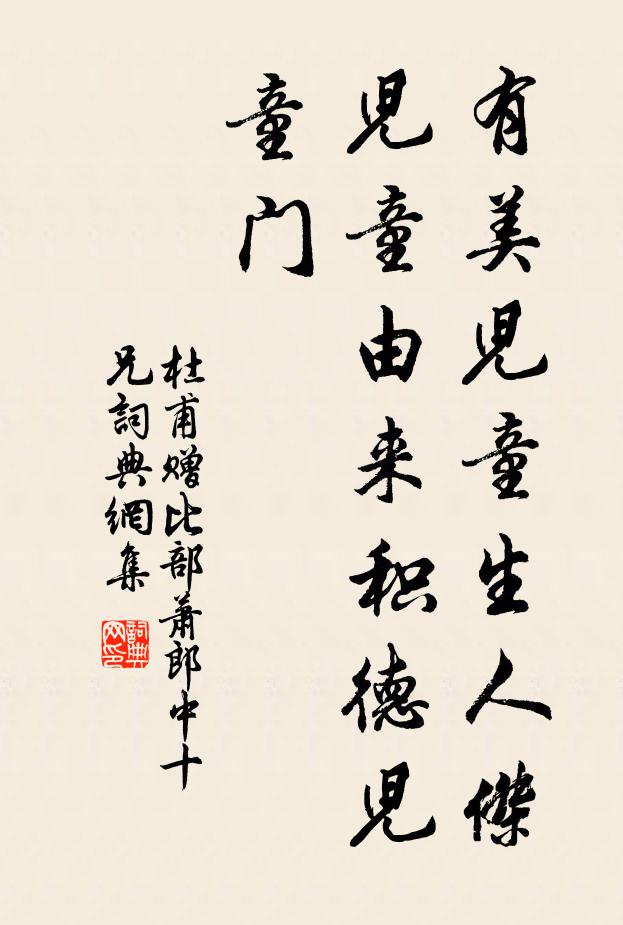 有美児童生人傑
児童由来积德児
童门
杜甫赠比部萧郎中十
兄詞典網集
詞典
网印